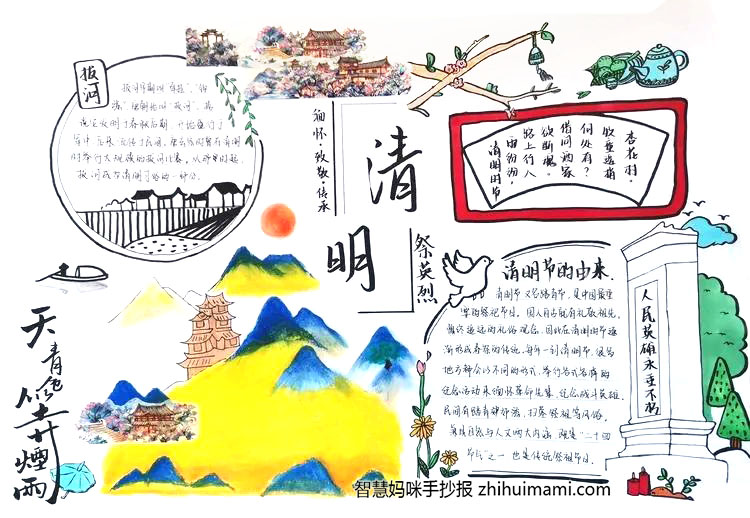 拔河
拔河早期叫“牵钩”、“钩
强”,唐朝始叫“拔河”。据
说它发明于春秋后期,开始盛行于
军中,后来流传于民间。唐玄宗时曾在清明
时举行大规模的拔河比赛。从那时起,
拔河成为清明习俗的一部分。
缅怀·致敬·传承
清明
祭英烈
清明时节
雨纷纷,
路上行人
欲断魂。
借问酒家
何处有?
牧童遥指
杏花村。
清明节的由来.
清明节又名踏青节,是中国最重
要的祭祀节日。国人自古就有礼敬祖先,
慎终追远的礼俗观念。因此在清明时节逐
渐形成
的传统,每年一到清明节,很多
地方都会以不同的形式,举行各式各样的
纪念活动来缅怀革命先辈,纪念战斗英雄。
民间有踏青郊游、扫墓祭祖等风俗。
兼具自然与人文两大内涵,既是“二十四
节气”之一 也是传统祭祖节日。
人民英雄永垂不朽
天青色等煙雨
智慧妈咪手抄报 zhihuimami.com